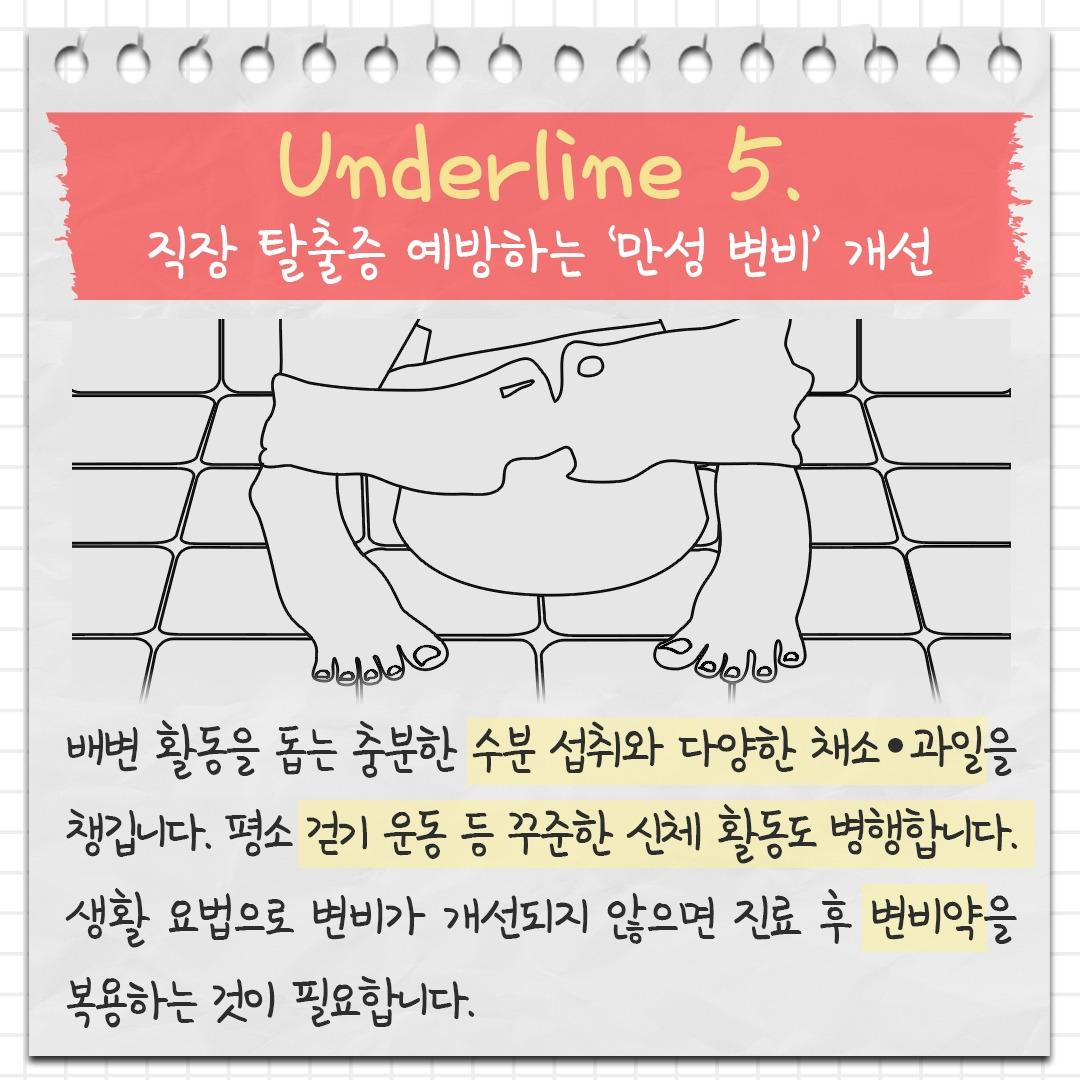 Underline 5.
직장 탈출증 예방하는 ‘만성 변비’ 개선
배변 활동을 돕는 충분한 수분 섭취와 다양한 채소•과일을
챙깁니다. 평소 걷기 운동 등 꾸준한 신체 활동도 병행합니다.
생활 요법으로 변비가 개선되지 않으면 진료 후 변비약을
복용하는 것이 필요합니다.